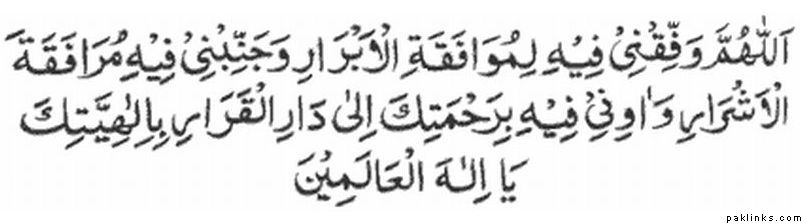 اَللّٰهُمَّ وَفِّقْنِيْ فِيْهِ لِمُوَافَقَةِ الْاَبْرَارِ وَجَنِّبْنِيْ فِيْهِ مُرَافَقَةَ
الْاَشْرَارِ وَاٰوِنِيْ فِيْهِ بِرَحْمَتِكَ اِلٰى دَارِ الْقَرَارِ بِاِلٰهِيَّتِكَ
يَا اِلٰهَ الْعَالَمِيْنَ
paklinks.com